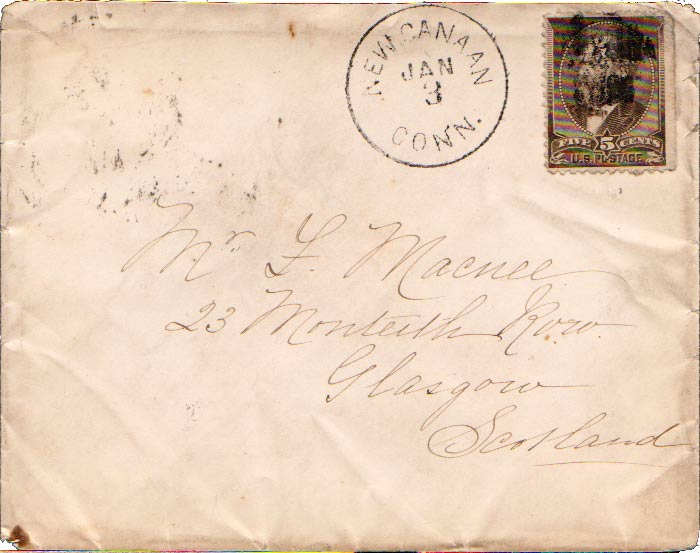 NEW CANAAN
JAN
3
CONN.
FIVE 5 CENTS
U.S. POSTAGE
Mr F. Macnee
23 Monteith Row.
Glasgow
Scotland